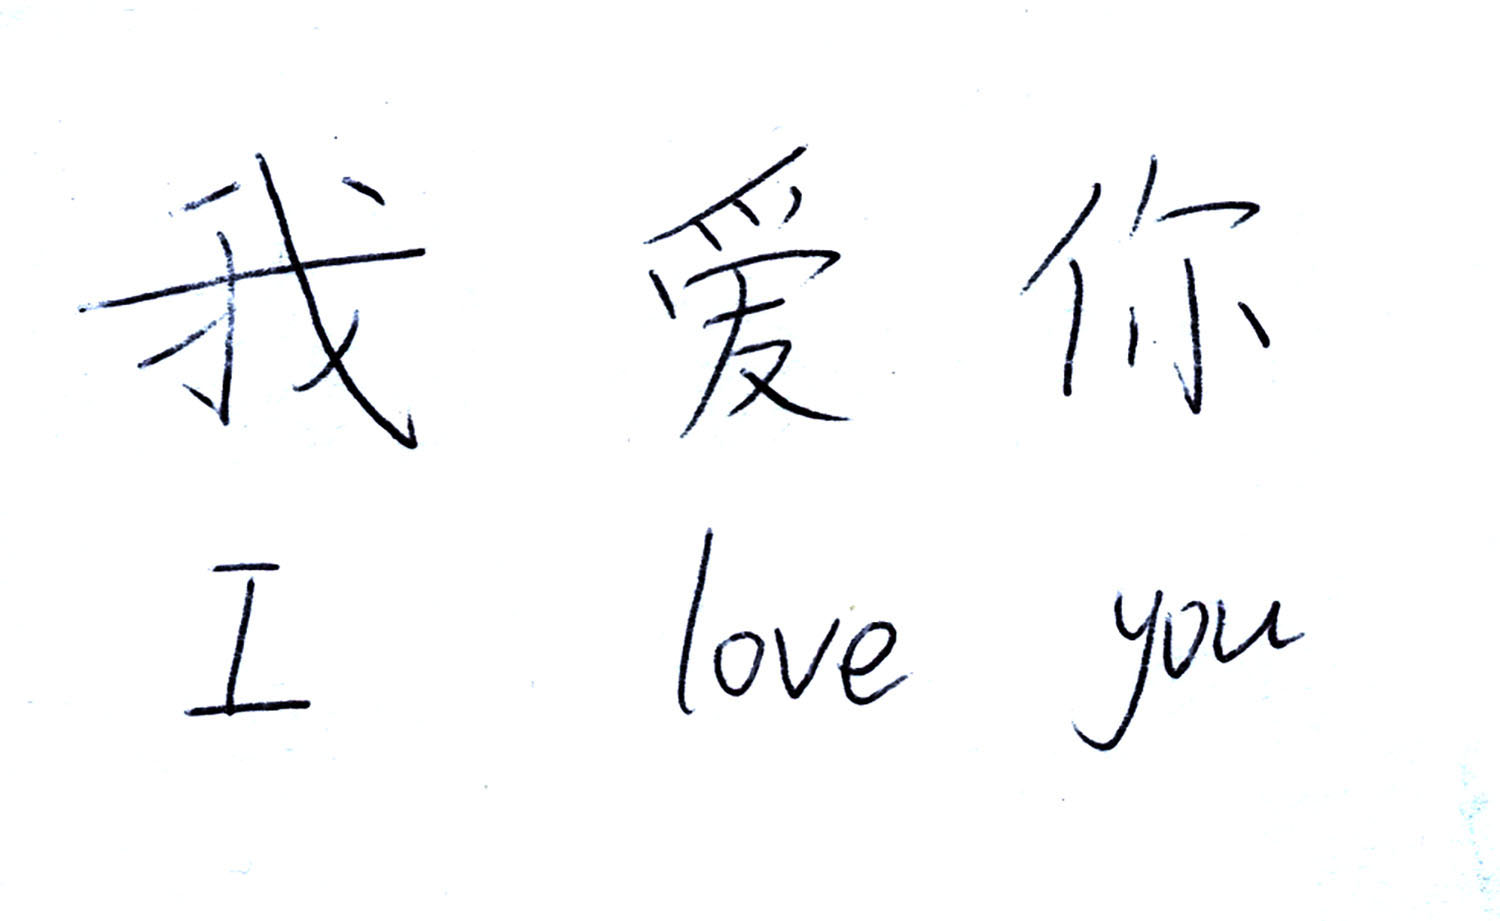 我 爱 你
I love you